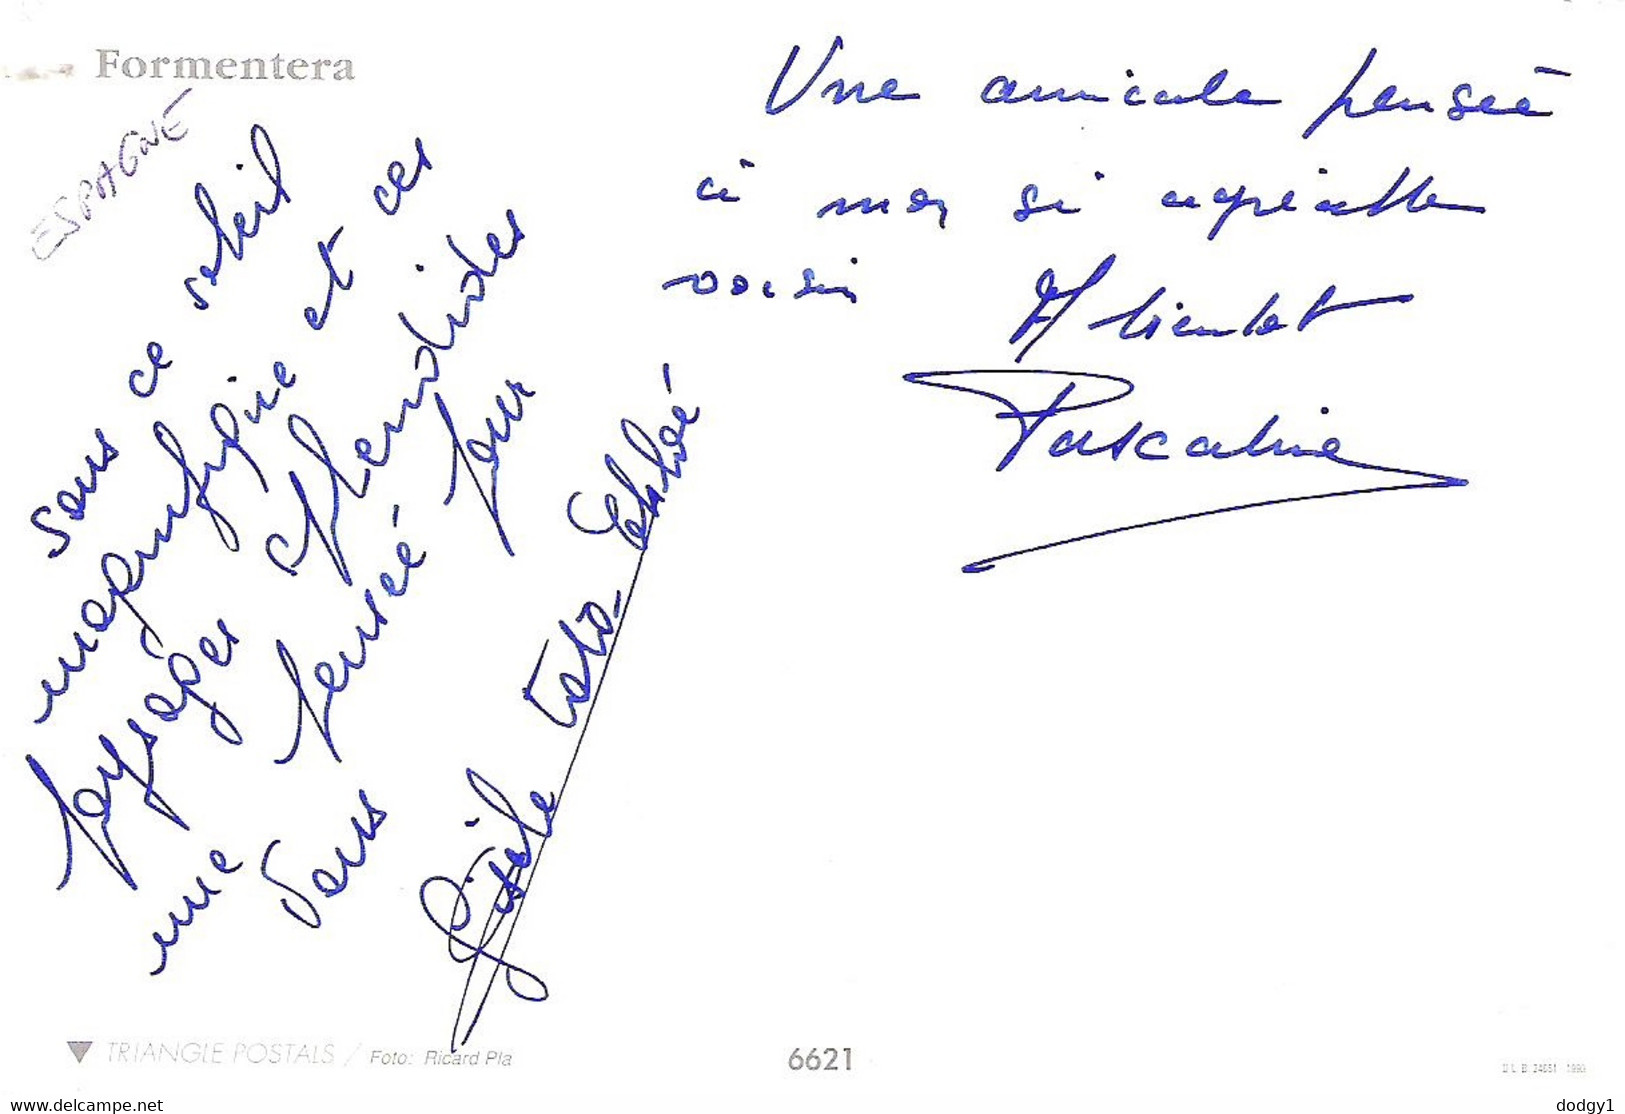 Formentera
ESPAGNE
sous ce soleil
magnifique et ces
paysages splendides
une pensée pour
vous
Gisèle Toto
Une amicale pensée
à mon si agréable
voisin
A bientot
Pascaline
TRIANGLE POSTALS / Foto: Ricard Pla
6621
www.delcampe.net
dodgy1